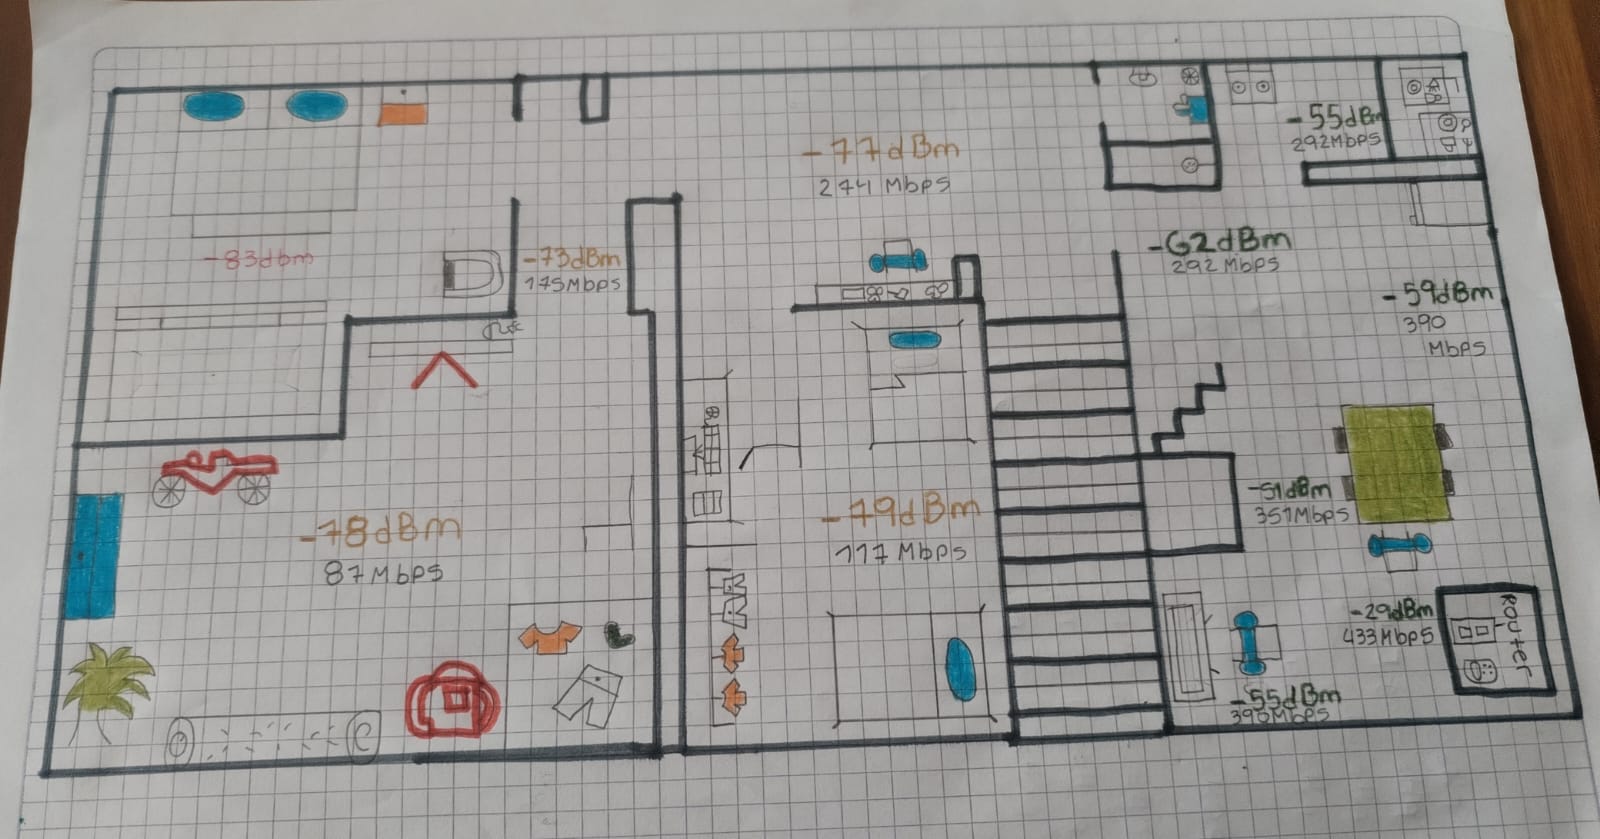 -77dBm
274 Mbps
-55dBm
292Mbps
-83dbm
-73dBm
175Mbps
-62dBm
292 Mbps
-59dBm
390
Mbps
-51dBm
351Mbps
-78dBm
87Mbps
-79dBm
117 Mbps
-29dBm
433Mbps
Router
-55dBm
390Mbps